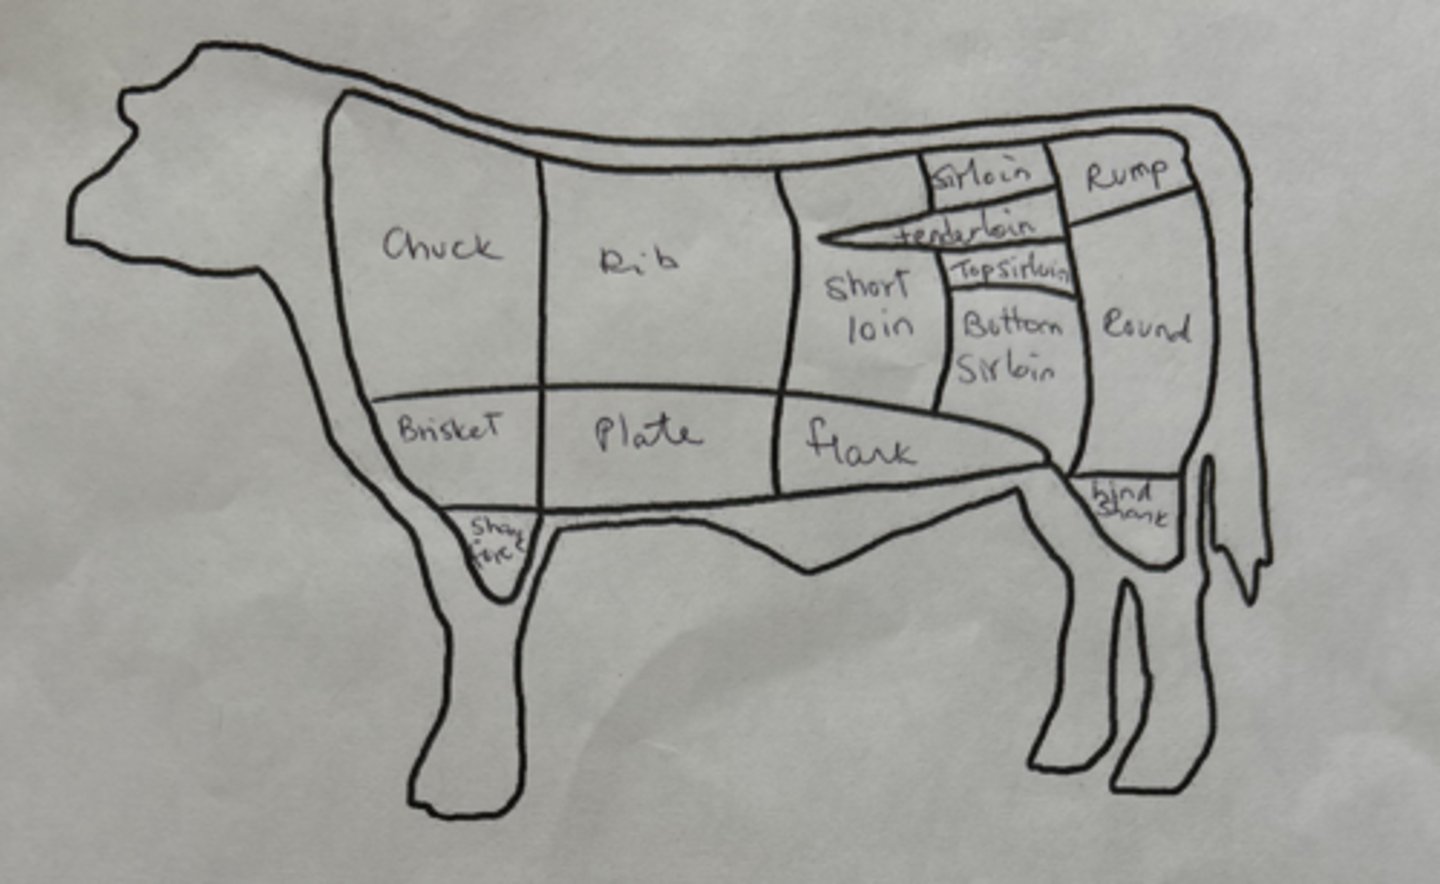 Chuck
Rib
Short
loin
Sirloin
tenderloin
Top sirloin
Bottom
Sirloin
Rump
Round
Brisket
Plate
flank
Shank
fore
hind
shank